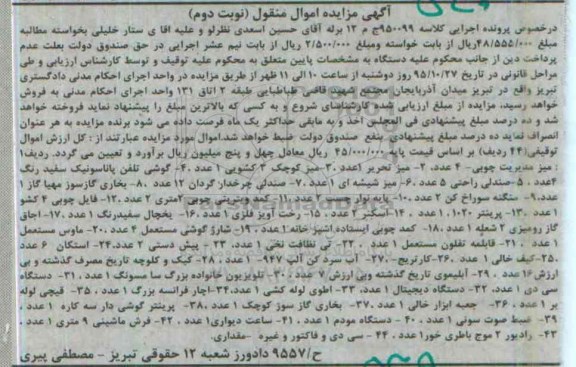 آگهی مزایده اموال منقول (نوبت دوم)
درخصوص پرونده اجرایی کلاسه ۹۵۰۰۹۹ج م ۱۲ برله آقای حسین اسعدی نظرلو و علیه اقا ی ستار خلیلی بخواسته مطالبه
مبلغ ۴۸/۵۵۵/۰۰۰ریال از بابت خواسته ومبلغ ۲/۵۰۰/۰۰۰ ریال از بابت نیم عشر اجرایی در حق صندوق دولت بعلت عدم
پرداخت دین از جانب محکوم علیه دستگاه به مشخصات پایین متعلق به محکوم علیه توقیف و توسط کارشناس ارزیابی و طی
مراحل قانونی در تاریخ ۹۵/۱۰/۲۷ روز دوشنبه از ساعت ۱۰ الی ۱۱ ظهر از طریق مزایده در واحد اجرای احکام مدنی دادگستری
تبریز واقع در تبریز میدان آذربایجان مجتمع شهید قاضی طباطبایی طبقه ۲ اتاق ۱۳۱ واحد اجرای احکام مدنی به فروش
خواهد رسید، مزایده از مبلغ ارزیابی شده کارشناسای شروع و به کسی که بالاترین مبلغ را پیشنهاد نماید فروخته خواهد
شد و ده درصد مبلغ پیشنهادی فی المجلس اخذ و به مابقی حداکثر یک ماه فرصت داده می شود برنده مزایده به هر عنوان
انصراف نماید ده درصد مبلغ پیشنهادی بنفع صندوق دولت ضبط خواهد شد.اموال مورد مزایده عبارتند از : کل ارزش اموال
توقیفی(۴۴ ردیف) بر اساس قیمت پایه ۴۵/۰۰۰/۰۰۰ ریال معادل چهل و پنج میلیون ریال برآورد و تعیین می گردد. ردیف۱
: میز مدیریت چوبی- ۴ عدد، ۲- میز تحریر ۱عدد .۳- میز کوچک ۳ کشویی ۱ عدد .۴- گوشی تلفن پاناسونیک سفید رنگ
۴عدد . ۵-صندلی راحتی ۵ عدد .۶- میز شیشه ای ۱ عدد .۷- صندلی چرخدار گردان ۱۲ عدد .۸- بخاری گازسوز مهیا گاز ۱
عدد. ۹- منگنه سوراخ کن ۲ عدد .۱۰- پایه نوار چسب ۳ عدد .۱۱- کمد ویترینی چوبی ۲متری ۲ عدد .۱۲- فایل چوبی ۴ کشو
۱ عدد .۱۳- پرینتر ۱۰۲۰، ۱ عدد . ۱۴-اسکنر ۲ عدد . ۱۵- رخت آویز فلزی ۱ عدد .۱۶- یخچال سفیدرنگ ۱ عدد .۱۷- اجاق
گاز رومیزی ۲ شعله ۱ عدد .۱۸- کمد چوبی ایستاده اشپز خانه ۱ عدد . ۱۹- شارژ گوشی مستعمل ۴ عدد .۲۰- ماوس مستعمل
۱ عدد . ۲۱- قابلمه تفلون مستعمل ۱ عدد . ۲۲- تی نظافت نخی ۱ عدد . ۲۳- پیش دستی ۲ عدد .۲۴- استکان ۶ عدد
.۲۵-کیف خالی ۱ عدد .۲۶-کارتریج .۲۷- آب سرد کن آلپ ۹۴۷- ۱ عدد .۲۸- کیک و کلوچه تاریخ مصرف گذشته و بی
ارزش ۱۶ عدد . ۲۹- آبلیموی تاریخ گذشته وبی ارزش ۷ عدد . ۳۰- تلویزیون خانواده بزرگ سا مسونگ ۱ عدد . ۳۱- دستگاه
سی دی ۱ عدد. ۳۲- دستگاه دیجیتال ۱ عدد. ۳۳- اطوی لوله کشی ۱ عدد.۳۴-اچار فرانسه بزرگ ۱ عدد . ۳۵- قیچی لوله
بر ۱ عدد . ۳۶- جعبه ابزار خالی ۱ عدد .۳۷- بخاری گاز سوز کوچک ۱ عدد .۳۸- پرینتر گوشی دار سه کاره ۱ عدد .
۳۹- ضبط صوت سونی ۱ عدد . ۴۰- دستگاه مودم ۱ عدد . ۴۱- ساعت دیواری۱ عدد . ۴۲- فرش ماشینی ۹ متری ۱ عدد .
۴۳- رادیور ۲ موج باطری خور۱ عدد . ۴۴- سی دی و فاکتور و غیره -مقداری.
ح/۹۵۵۷ دادورز شعبه ۱۲ حقوقی تبریز - مصطفی پیری